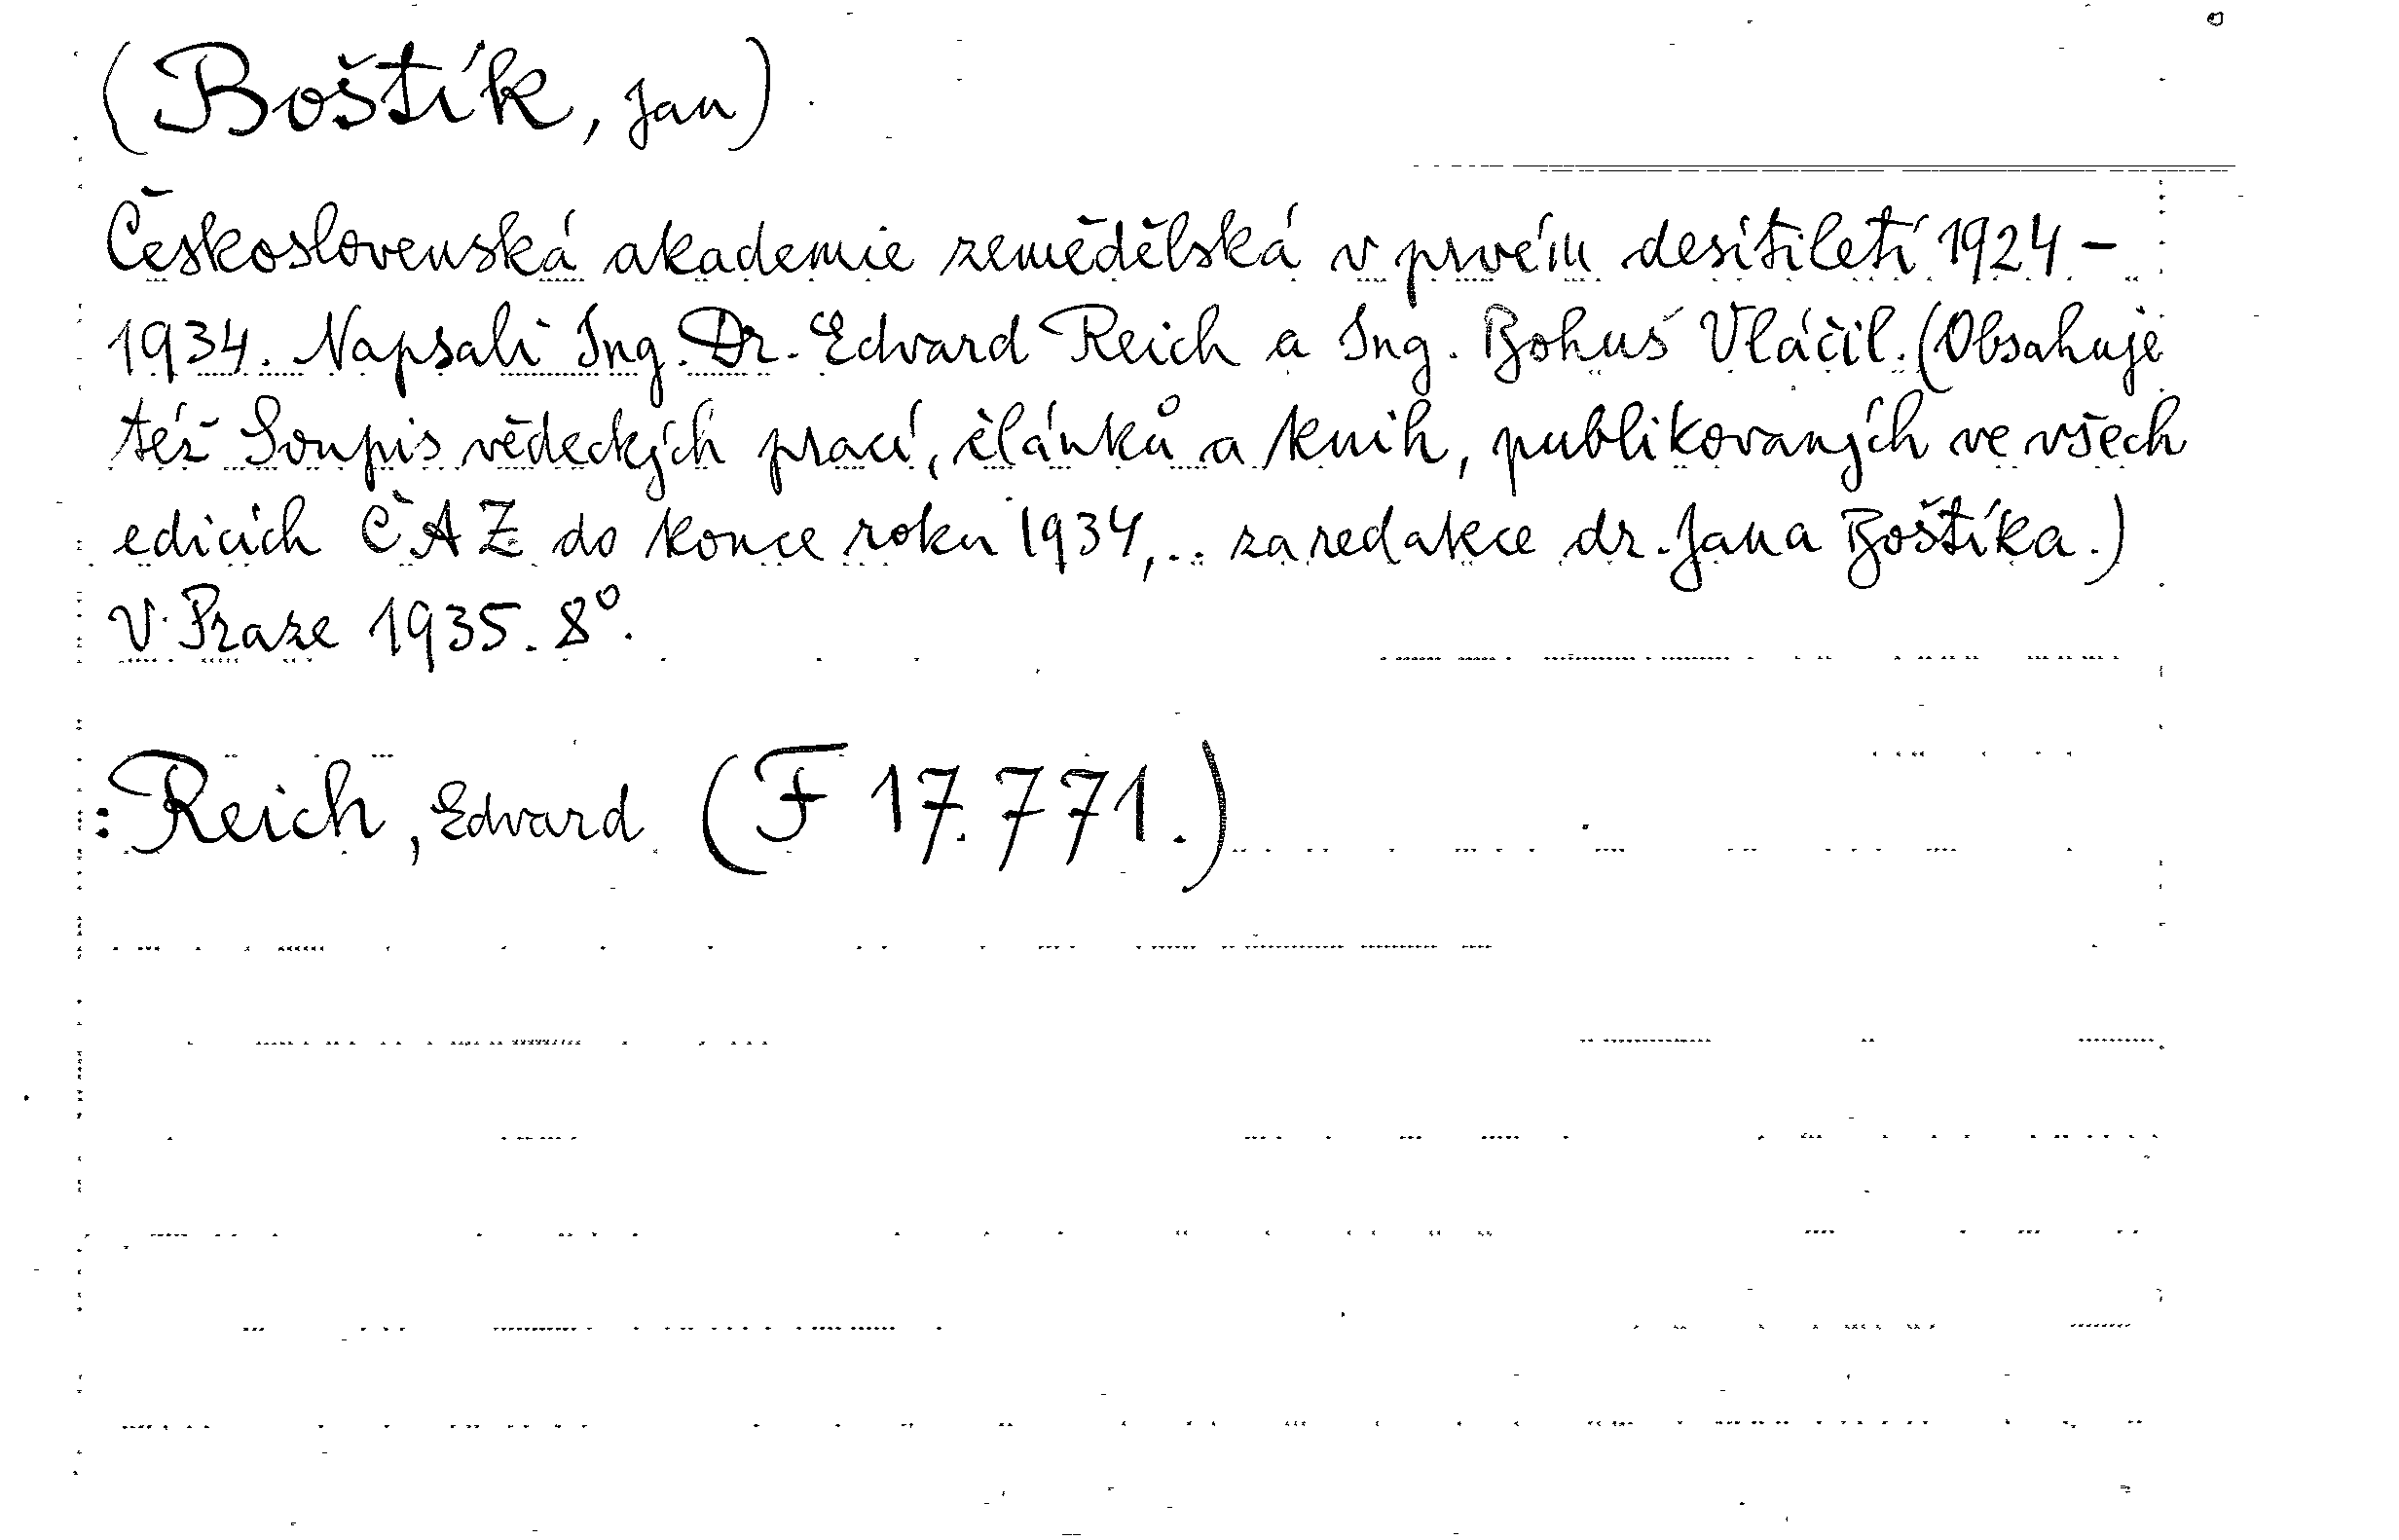 (Boštík, Jan)
Československá akademie zemědělská v prvém desítiletí 1924 –
1934. Napsali Ing. Dr. Edvard Reich a Ing. Bohuš Vláčil. (Obsahuje
též Soupis vědeckých prací, článků a knih, publikovaných ve všech
edicích ČAZ do konce roku 1934,.. za redakce dr. Jana Boštíka.)
V Praze 1935. 8°.
: Reich, Edvard (F 17.771.)